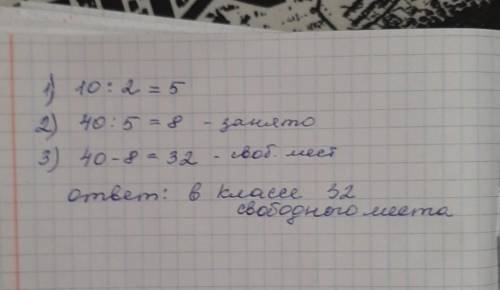 1) 10 : 2 = 5
2) 40 : 5 = 8 - занято
3) 40 - 8 = 32 - своб. мест
ответ: в классе 32
свободного места